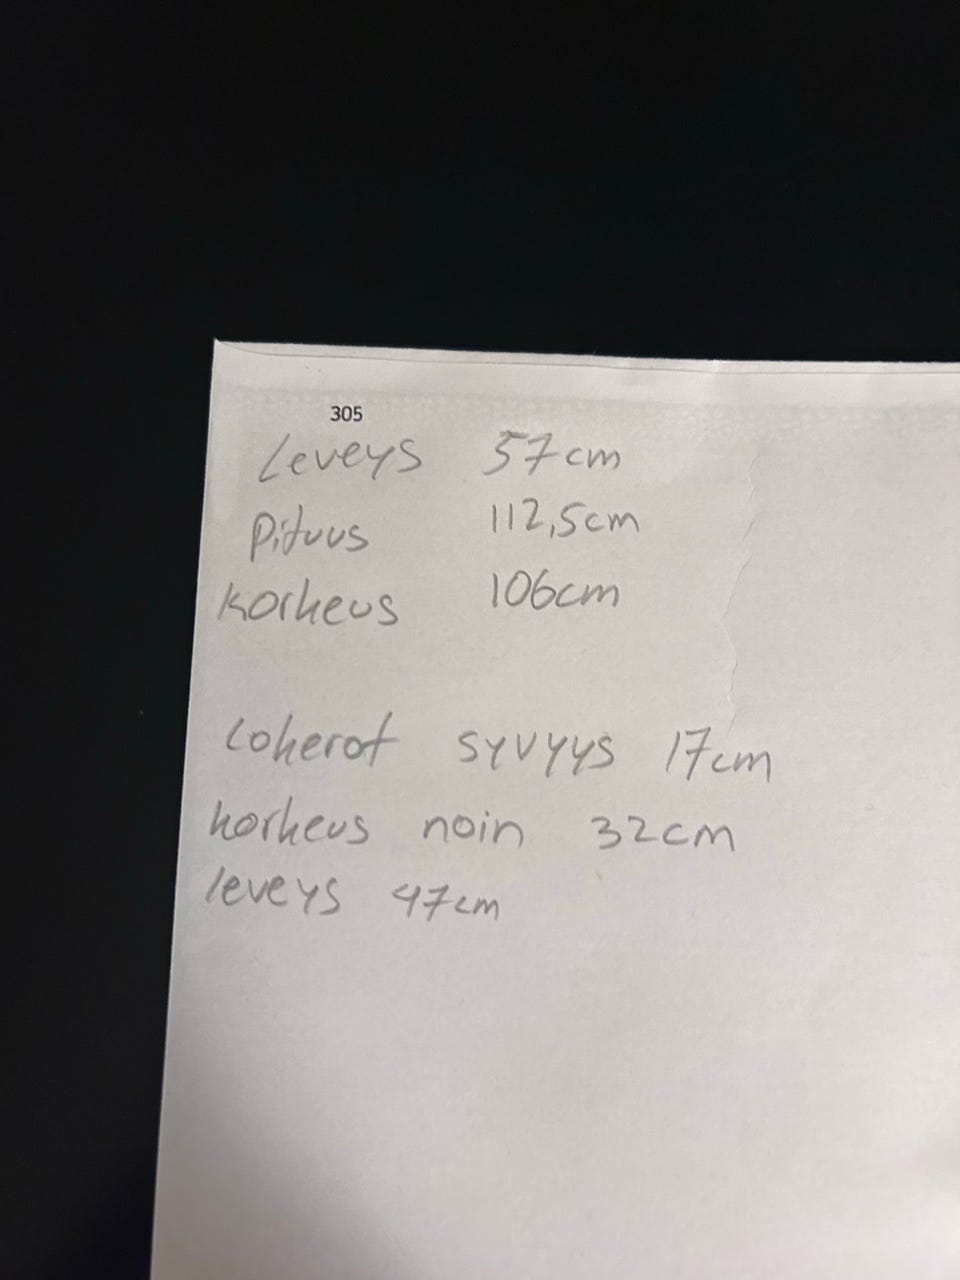 305
Leveys 57cm
Pituus 112,5cm
Korkeus 106cm
Lokerot syvyys 17cm
korkeus noin 32cm
leveys 47cm